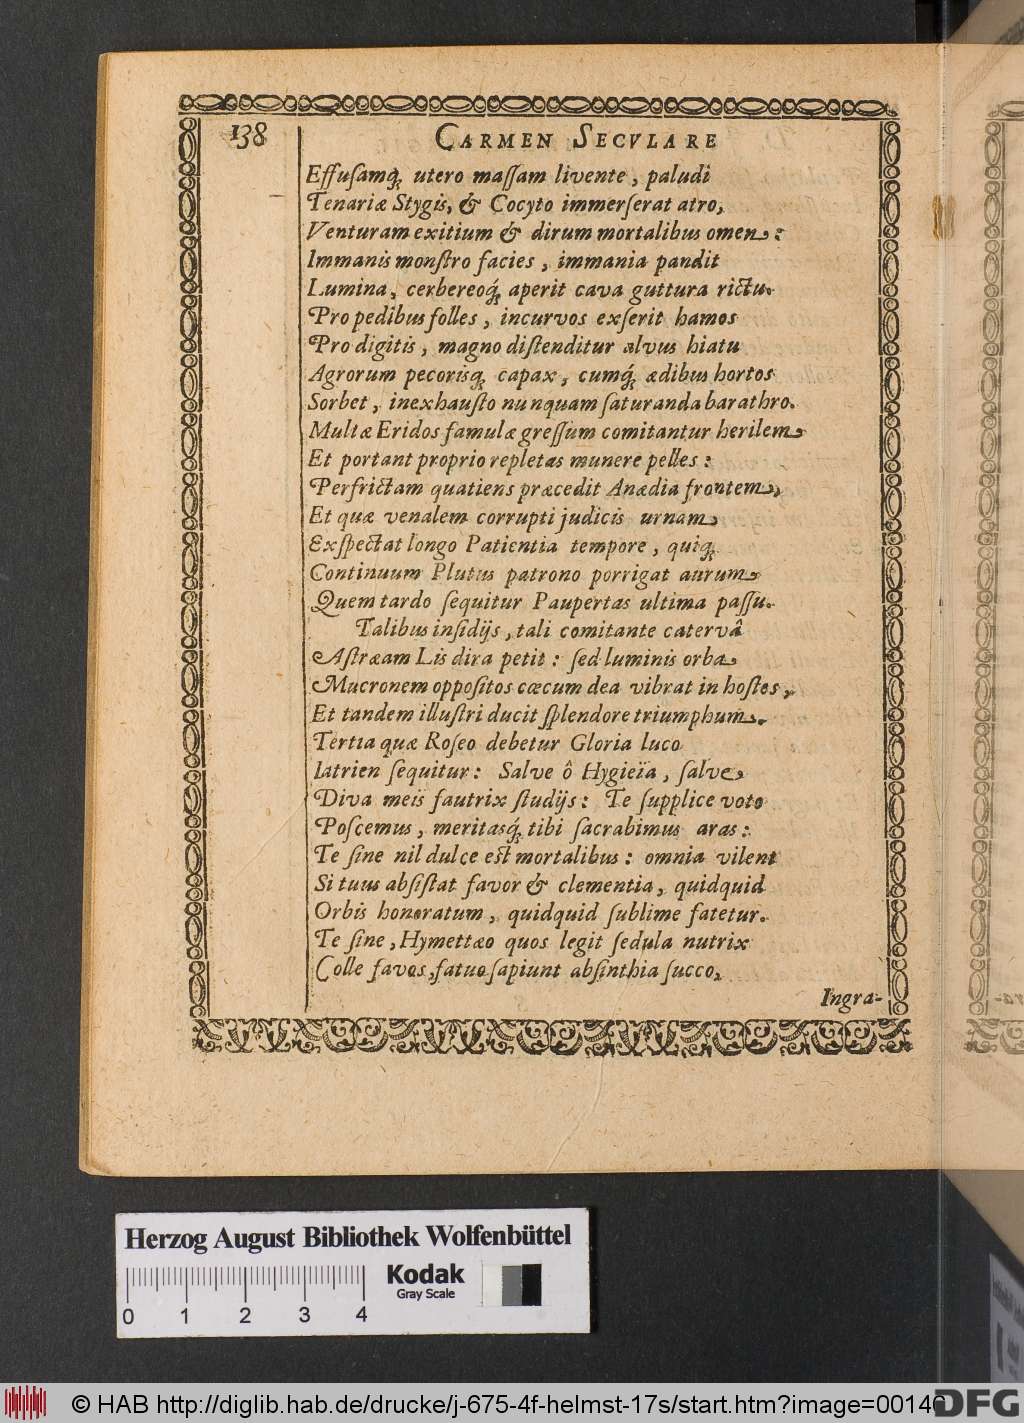 138
CARMEN SECVLARE
Effusamq́ꝫ utero maſſam livente, paludi
Tenariæ Stygis, & Cocyto immerſerat atro,
Venturam exitium & dirum mortalibus omen:
Immanis monſtro facies, immania pandit
Lumina, cerbereoq́ꝫ aperit cava guttura rictu.
Pro pedibus folles, incurvos exſerit hamos
Pro digitis, magno diſtenditur alvus hiatu
Agrorum pecorisqꝫ capax, cumq́ꝫ ædibus hortos
Sorbet, inexhauſto nunquam ſaturanda barathro.
Multæ Eridos famulæ greſſum comitantur herilem
Et portant proprio repletas munere pelles:
Perfrictam quatiens præcedit Anædia frontem,
Et quæ venalem corrupti judicis urnam
Exſpectat longo Patientia tempore, quiqꝫ
Continuum Plutus patrono porrigat aurum
Quem tardo ſequitur Paupertas ultima paſſu.
Talibus inſidijs, tali comitante catervâ
Aſtræam Lis dira petit: ſed luminis orba
Mucronem oppoſitos cæcum dea vibrat in hoſtes,
Et tandem illuſtri ducit ſplendore triumphum.
Tertia quæ Roſeo debetur Gloria luco
Iatrien ſequitur: Salve ô Hygieïa, ſalve
Diva meis fautrix ſtudijs: Te ſupplice voto
Poſcemus, meritasq́ꝫ tibi ſacrabimus aras:
Te ſine nil dulce eſt mortalibus: omnia vilent
Si tuus abſiſtat favor & clementia, quidquid
Orbis honoratum, quidquid ſublime fatetur.
Te ſine, Hymettæo quos legit ſedula nutrix
Colle favos, fatuo ſapiunt abſinthia ſucco,
Ingra-
Herzog August Bibliothek Wolfenbüttel
Kodak
Gray Scale
0 1 2 3 4
© HAB http://diglib.hab.de/drucke/j-675-4f-helmst-17s/start.htm?image=00140
DFG